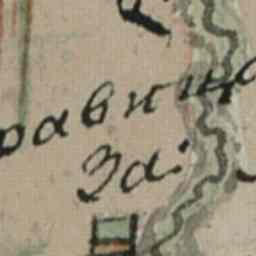 равица
За: